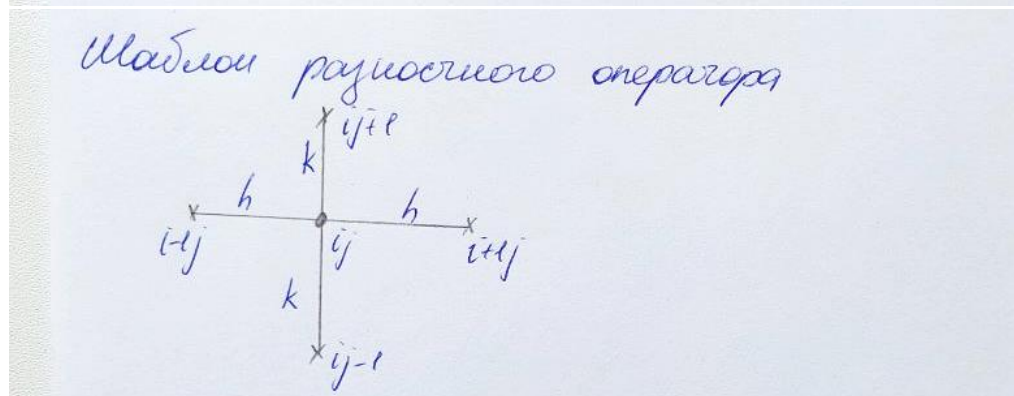 Шаблон разностного оператора
ij+1
k
h
h
i-1j
ij
i+1j
k
ij-1